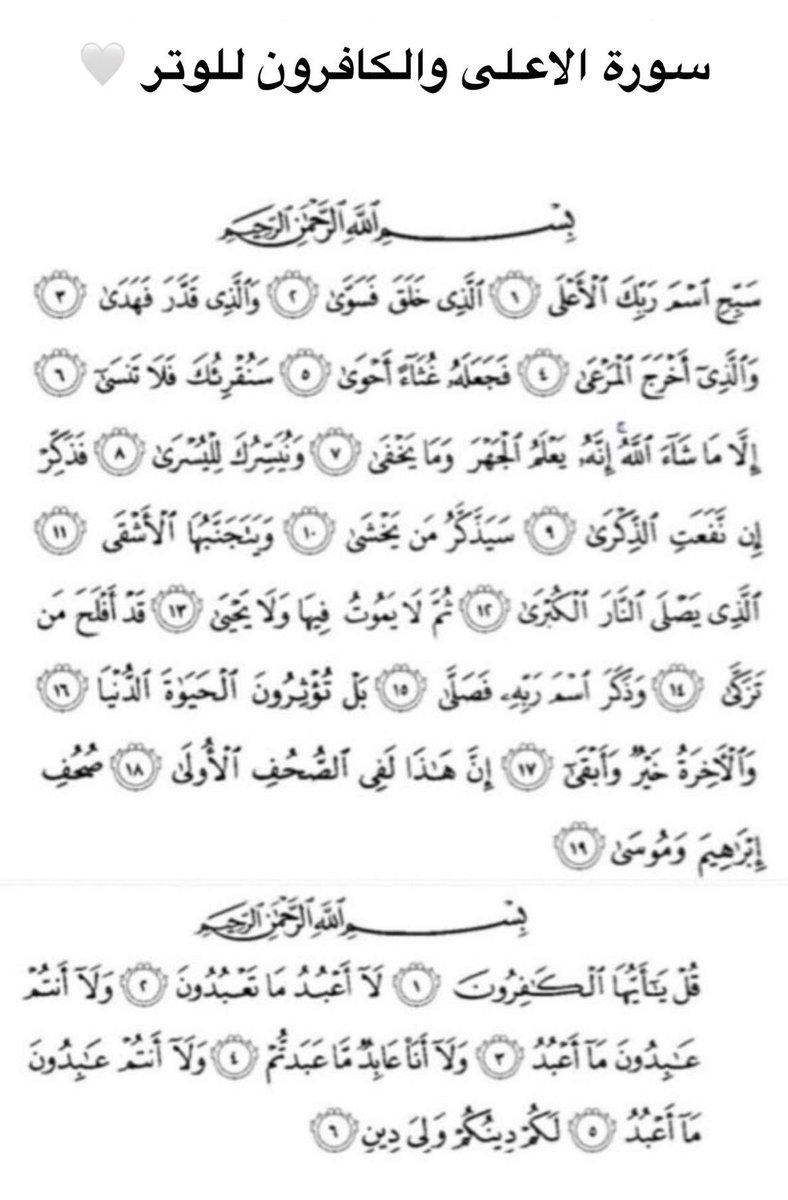 سورة الاعلى والكافرون للوتر 🤍
بِسْمِ ٱللَّهِ ٱلرَّحْمَٰنِ ٱلرَّحِيمِ
سَبِّحِ ٱسْمَ رَبِّكَ ٱلْأَعْلَى ١ ٱلَّذِى خَلَقَ فَسَوَّىٰ ٢ وَٱلَّذِى قَدَّرَ فَهَدَىٰ ٣
وَٱلَّذِىٓ أَخْرَجَ ٱلْمَرْعَىٰ ٤ فَجَعَلَهُۥ غُثَآءً أَحْوَىٰ ٥ سَنُقْرِئُكَ فَلَا تَنسَىٰٓ ٦
إِلَّا مَا شَآءَ ٱللَّهُ ۚ إِنَّهُۥ يَعْلَمُ ٱلْجَهْرَ وَمَا يَخْفَىٰ ٧ وَنُيَسِّرُكَ لِلْيُسْرَىٰ ٨ فَذَكِّرْ
إِن نَّفَعَتِ ٱلذِّكْرَىٰ ٩ سَيَذَّكَّرُ مَن يَخْشَىٰ ١٠ وَيَتَجَنَّبُهَا ٱلْأَشْقَى ١١
ٱلَّذِى يَصْلَى ٱلنَّارَ ٱلْكُبْرَىٰ ١٢ ثُمَّ لَا يَمُوتُ فِيهَا وَلَا يَحْيَىٰ ١٣ قَدْ أَفْلَحَ مَن
تَزَكَّىٰ ١٤ وَذَكَرَ ٱسْمَ رَبِّهِۦ فَصَلَّىٰ ١٥ بَلْ تُؤْثِرُونَ ٱلْحَيَوٰةَ ٱلدُّنْيَا ١٦
وَٱلْءَاخِرَةُ خَيْرٌ وَأَبْقَىٰٓ ١٧ إِنَّ هَٰذَا لَفِى ٱلصُّحُفِ ٱلْأُولَىٰ ١٨ صُحُفِ
إِبْرَٰهِيمَ وَمُوسَىٰ ١٩
بِسْمِ ٱللَّهِ ٱلرَّحْمَٰنِ ٱلرَّحِيمِ
قُلْ يَٰٓأَيُّهَا ٱلْكَٰفِرُونَ ١ لَآ أَعْبُدُ مَا تَعْبُدُونَ ٢ وَلَآ أَنتُمْ
عَٰبِدُونَ مَآ أَعْبُدُ ٣ وَلَآ أَنَا۠ عَابِدٌ مَّا عَبَدتُّمْ ٤ وَلَآ أَنتُمْ عَٰبِدُونَ
مَآ أَعْبُدُ ٥ لَكُمْ دِينُكُمْ وَلِىَ دِينِ ٦